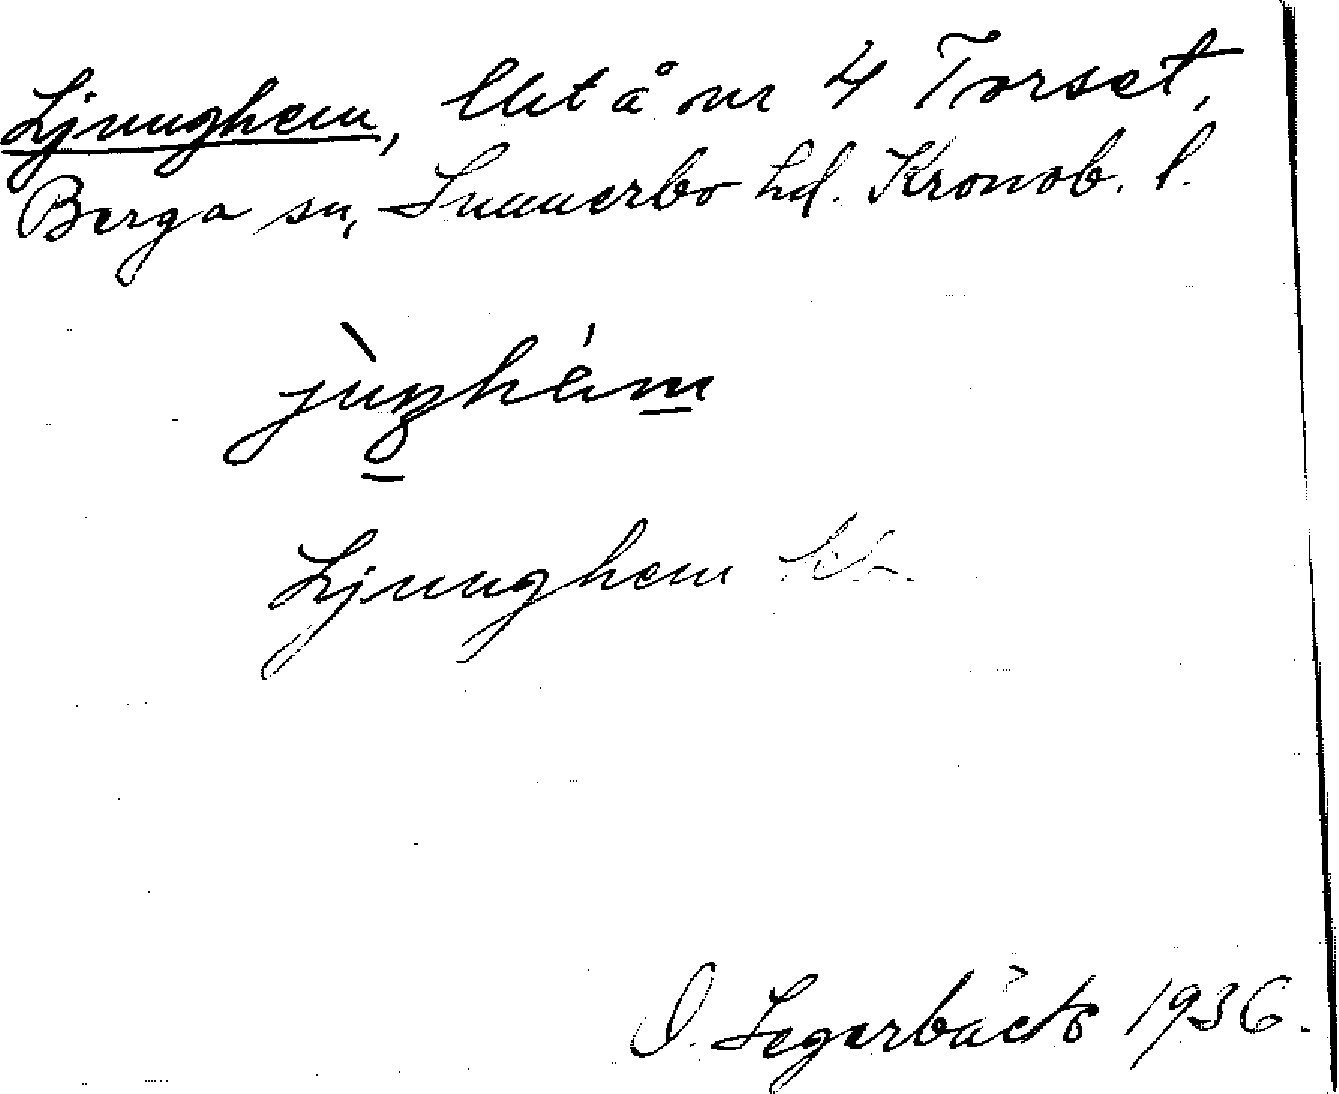 Ljunghem, lht å nr 4 Torset,
Berga sn, Sunnerbo hd. Kronob. l.
jùŋhém
Ljunghem
O. Segerbäck 1936.